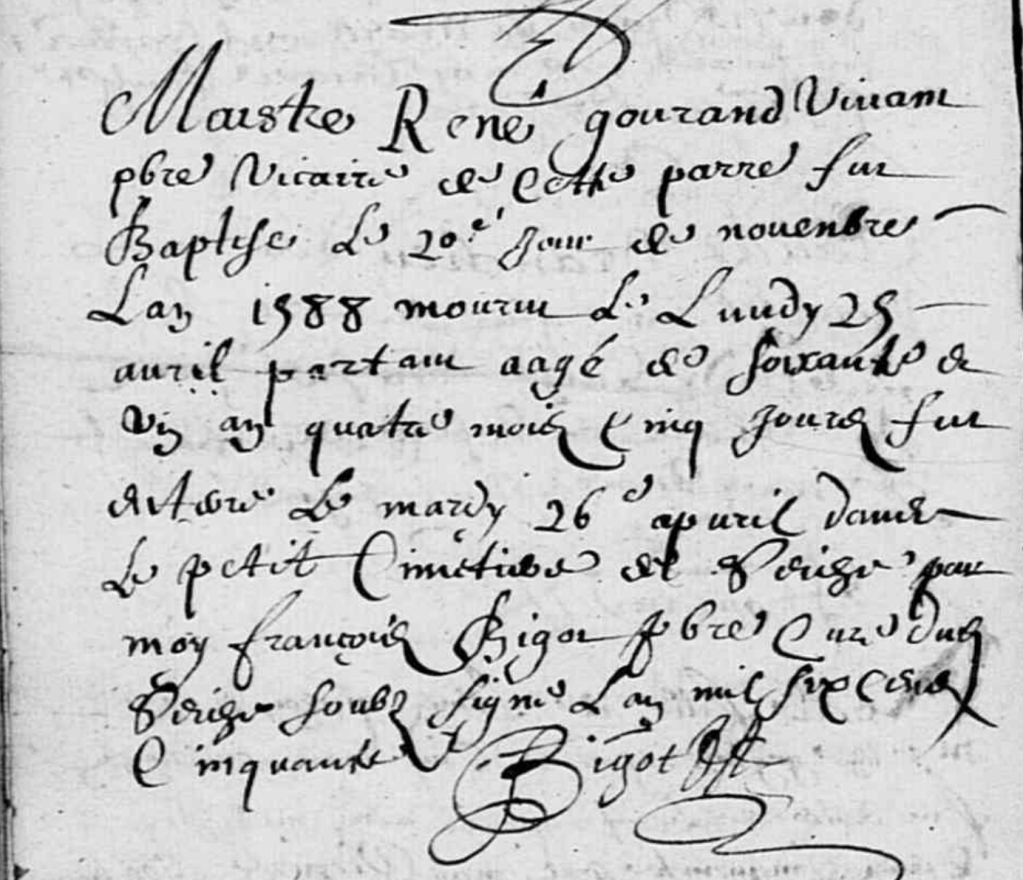 Maistre René gourand Vivant
pbre Vicaire de Cette parre fut
Baptise Le 20e Jour de novenbre
Lan 1588 mourut Le Lundy 25
avril partant aagé de soixante &
un an quatre mois Cinq Jours fut
enterre Le mardy 26e apvril dans
Le petit Cimetiere de Seiche par
moy françois Bigot pbre Cure dud
Seiche soubz signé Lan mil six Cens
Cinquante Bigot